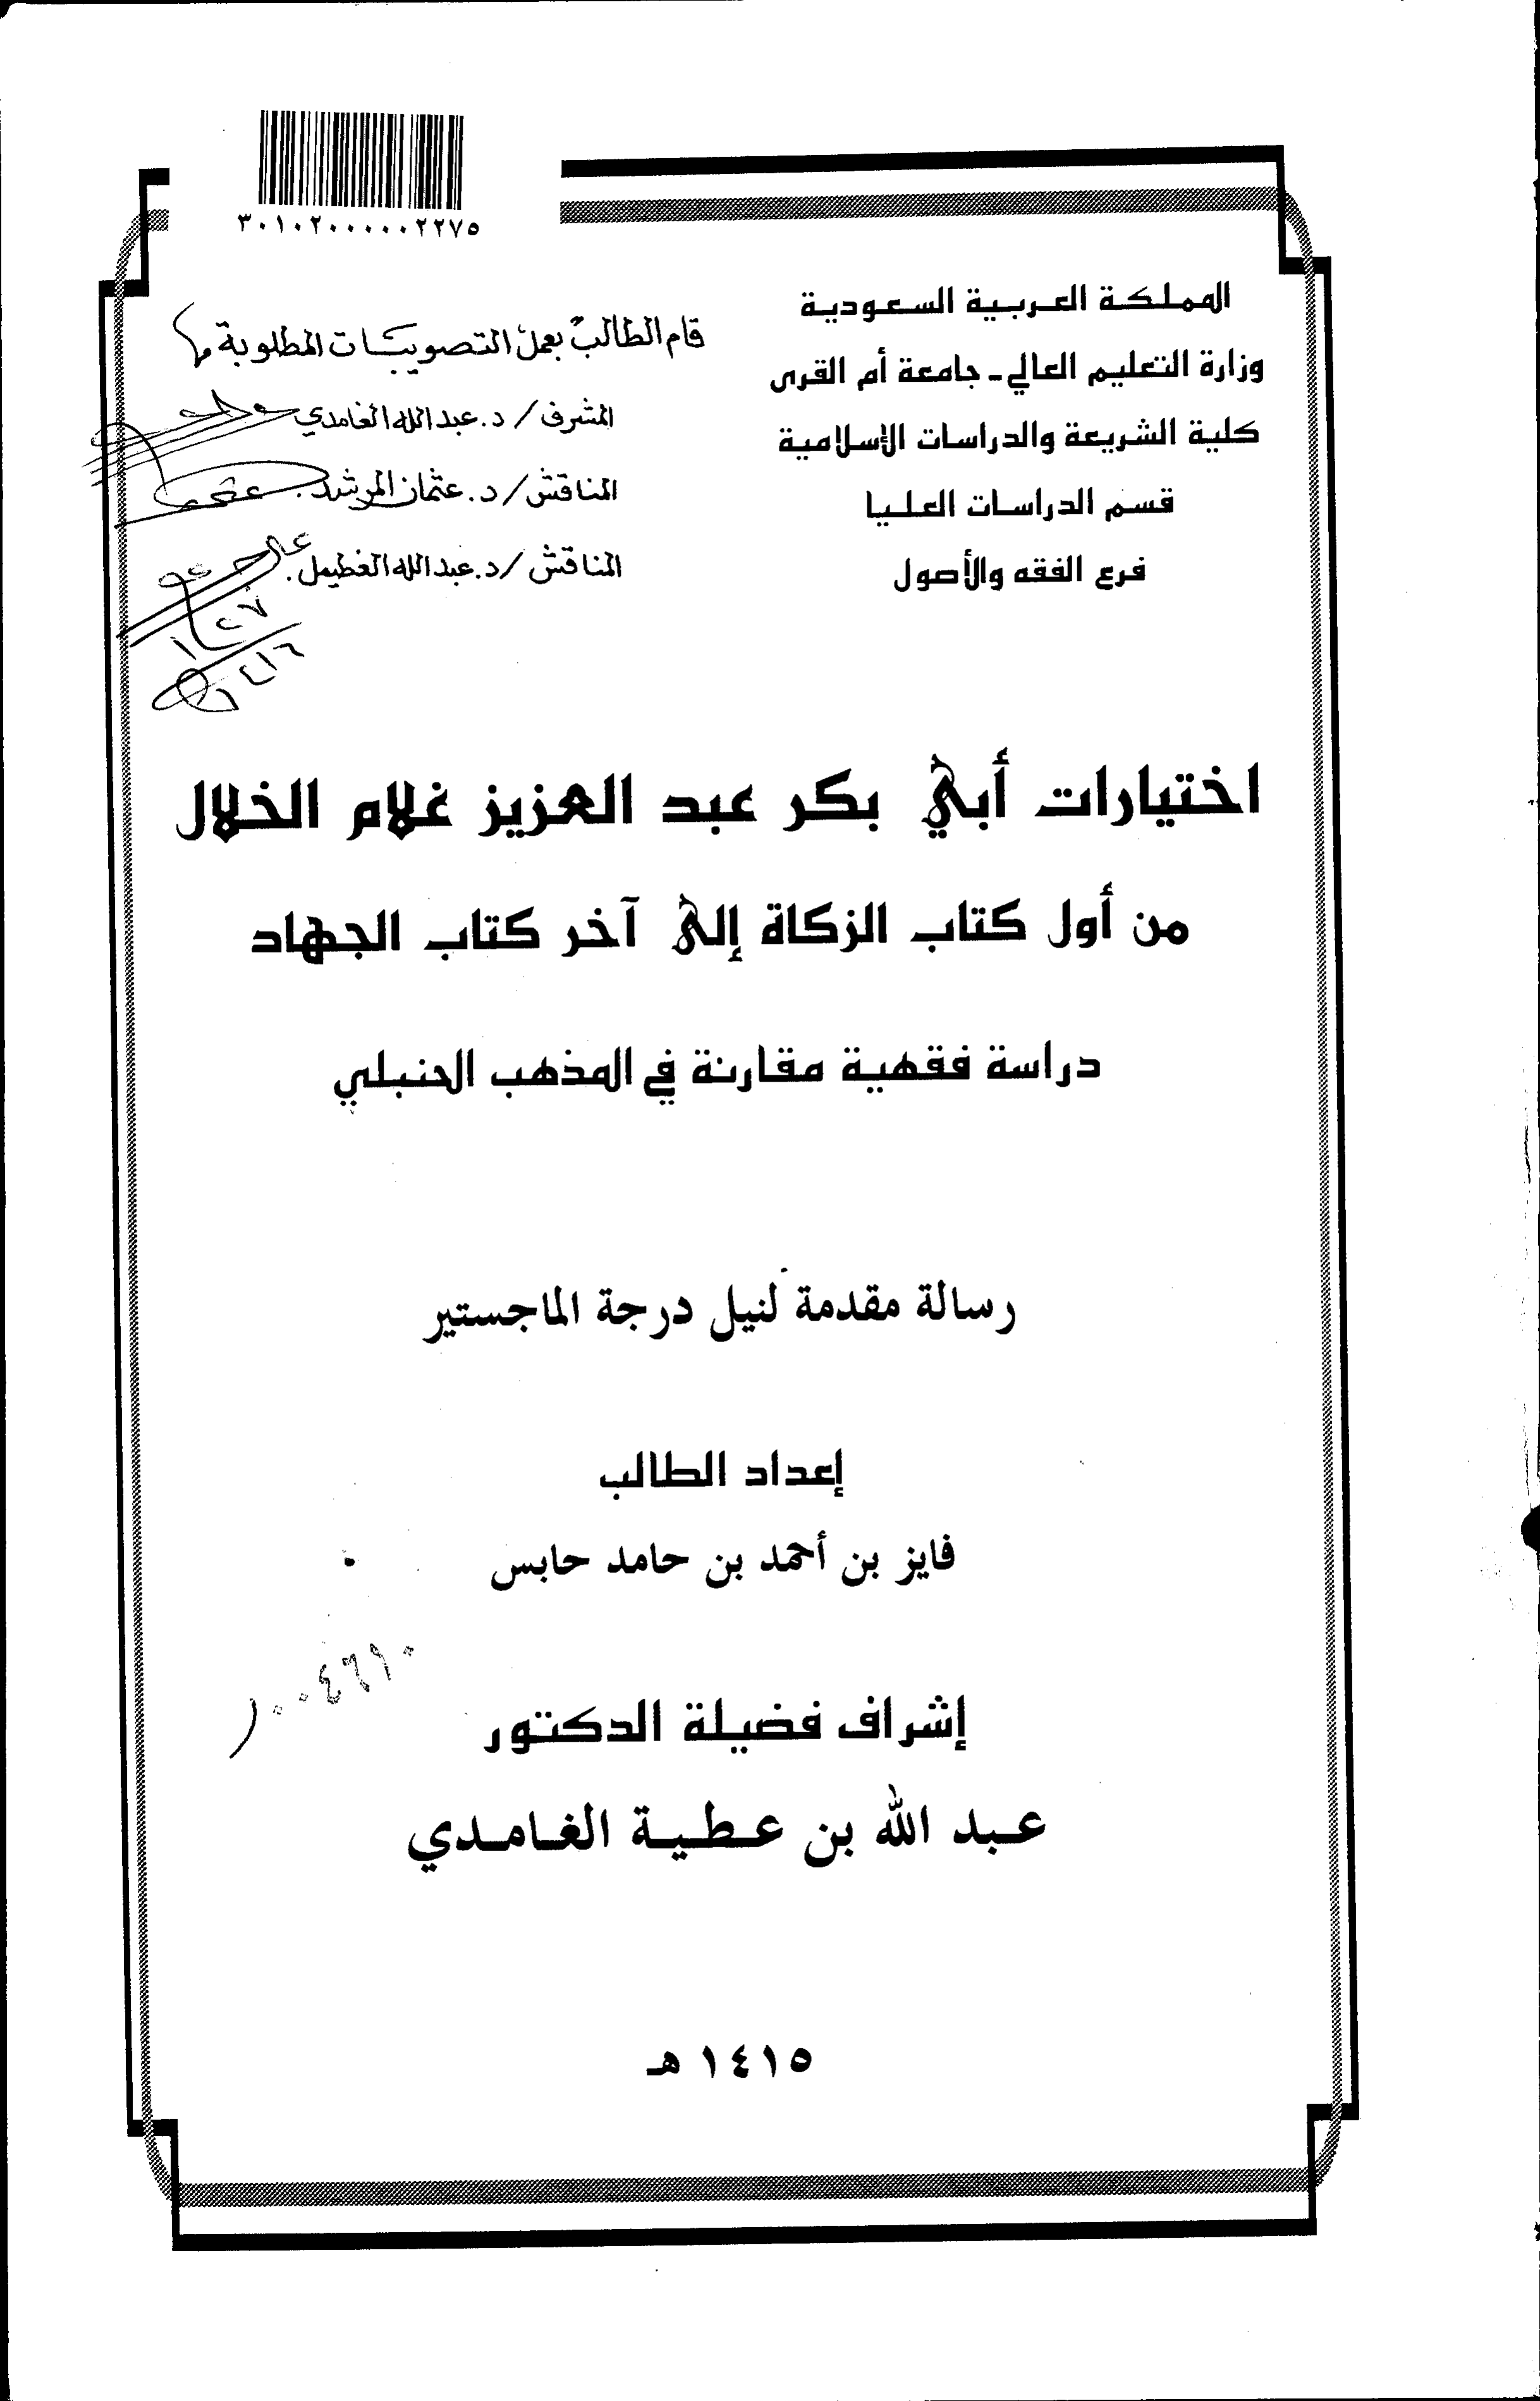 ٣٠١٠٢٠٠٠٠٠٢٢٧٥
المملكة العربية السعودية
وزارة التعليم العالي - جامعة أم القرى
كلية الشريعة والدراسات الإسلامية
قسم الدراسات العليا
فرع الفقه والأصول
قام الطالب بعمل التصويبات المطلوبة
المشرف / د. عبد الله الغامدي
المناقش / د. عثمان المرشد.
المناقش / د. عبد الله الغطيمل.
اختيارات أبي بكر عبد العزيز غلام الخلال
من أول كتاب الزكاة إلى آخر كتاب الجهاد
دراسة فقهية مقارنة في المذهب الحنبلي
رسالة مقدمة لنيل درجة الماجستير
إعداد الطالب
فايز بن أحمد بن حامد حابس
إشراف فضيلة الدكتور
عبد الله بن عطية الغامدي
١٤١٥ هـ